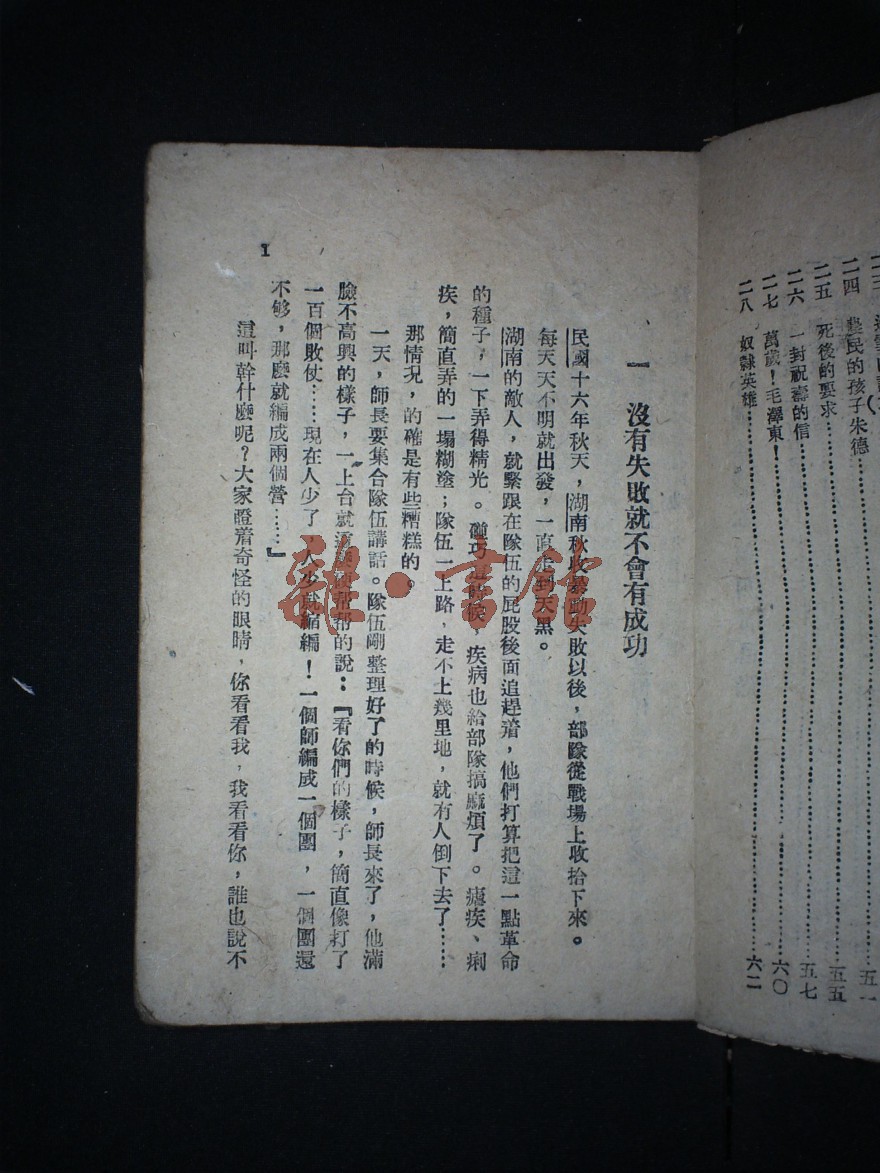 二四 農民的孩子朱德……五一
二五 死後的要求……五五
二六 一封祝壽的信……五七
二七 萬歲！毛澤東！……六〇
二八 奴隸英雄……六二
一 沒有失敗就不會有成功
民國十六年秋天，湖南秋收暴動失敗以後，部隊從戰場上收拾下來。
每天天不明就出發，一直走到天黑。
湖南的敵人，就緊跟在隊伍的屁股後面追趕着，他們打算把這一點革命
的種子，一下弄得精光。碰巧這時候，疾病也給部隊搞麻煩了。瘧疾、痢
疾，簡直弄的一塌糊塗；隊伍一上路，走不上幾里地，就有人倒下去了……
那情況，的確是有些糟糕的。
一天，師長要集合隊伍講話。隊伍剛整理好了的時候，師長來了，他滿
臉不高興的樣子，一上台就 的說：『看你們的樣子，簡直像打了
一百個敗仗……現在人少了，人少就縮編！一個師編成一個團，一個團還
不够，那麼就編成兩個營……』
這叫幹什麼呢？大家瞪着奇怪的眼睛，你看看我，我看看你，誰也說不
1
雜·書館